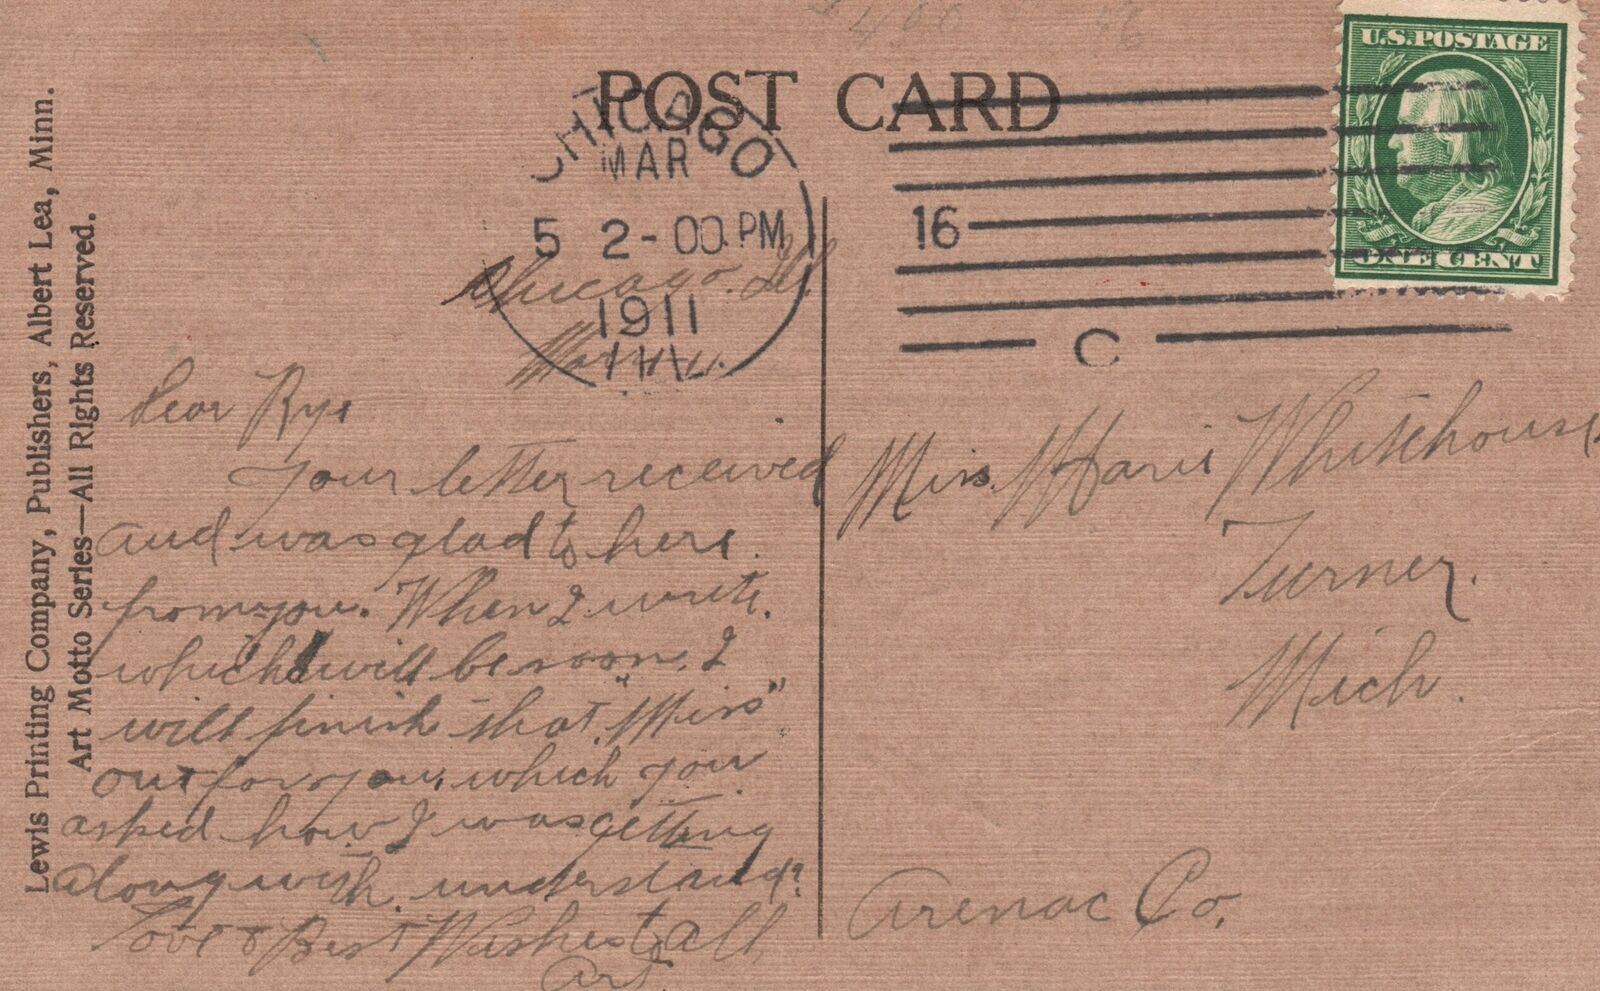 POST CARD
U.S.POSTAGE
ONE CENT
CHICAGO
MAR
5 2-00 PM
1911
ILL.
16
C
Lewis Printing Company, Publishers, Albert Lea, Minn.
Art Motto Series—All Rights Reserved.
Chicago. Ill.
Dear Rye
Your letter received
and was glad to here
from you. When I write.
which will be soon, I
will finish that "Miss"
out for you, which you
asked how I was getting
along with. understand?
Love & Best Wishes to all
Art
Miss. Whitehouse
Turner.
Mich.
Arenac Co.